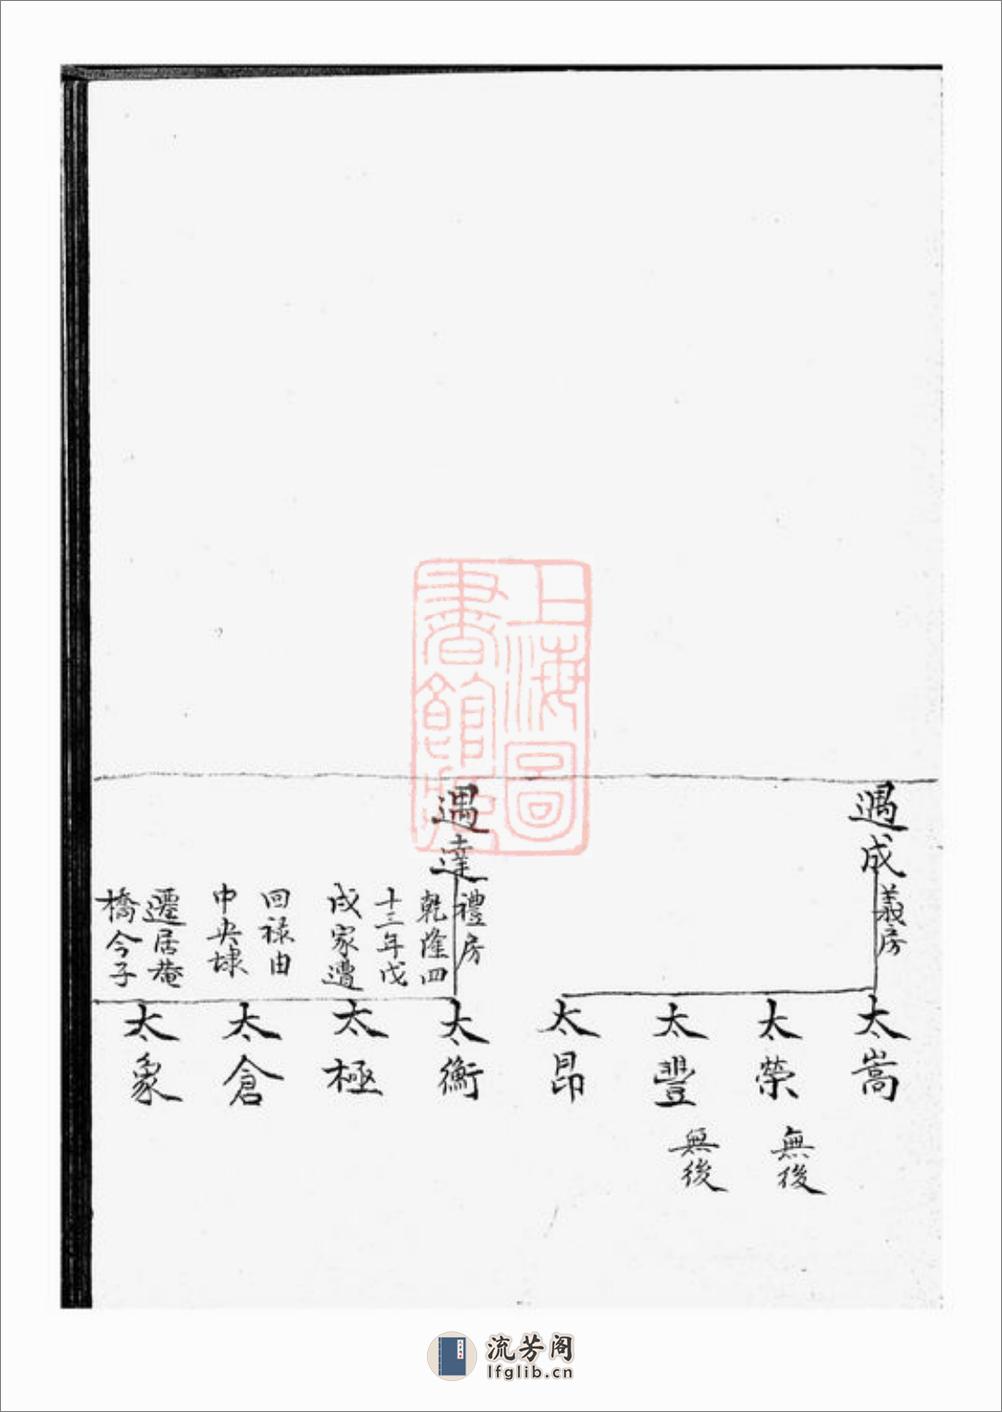 遇成
義房
太嵩
太榮
無後
太豐
無後
太昂
遇達
禮房
乾隆四
十三年戊
戌家遭
回禄由
中央埭
遷居菴
橋今子
太衡
太極
太倉
太象
上海圖
書館藏
流芳阁
lfglib.cn